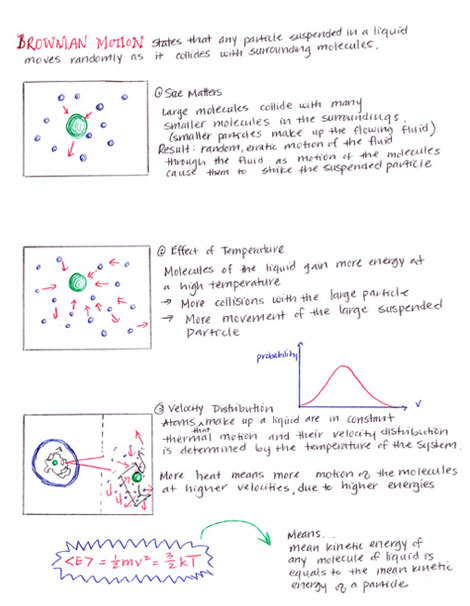 BROWNIAN MOTION states that any particle suspended in a liquid
moves randomly as it collides with surrounding molecules.
① Size Matters
Large molecules collide with many
smaller molecules in the surroundings.
(smaller particles make up the flowing fluid)
Result: random, erratic motion of the fluid
through the fluid as motion of the molecules
cause them to strike the suspended particle
② Effect of Temperature
Molecules of the liquid gain more energy at
a high temperature
→ More collisions with the large particle
→ More movement of the large suspended
particle
probability
v
③ Velocity Distribution
Atoms that make up a liquid are in constant
thermal motion and their velocity distribution
is determined by the temperature of the system.
More heat means more motion of the molecules
at higher velocities, due to higher energies
<E> = ½mv² = 3/2 kT
Means...
mean kinetic energy of
any molecule of liquid is
equals to the mean kinetic
energy of a particle